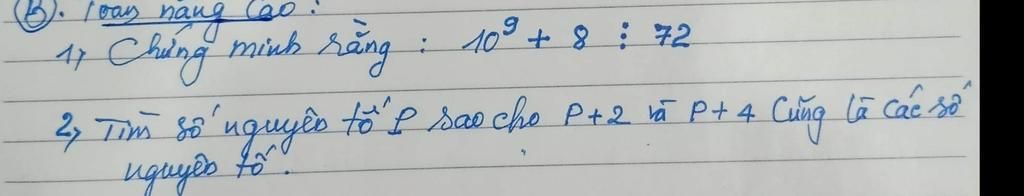 B). Toán nâng cao :
1, Chứng minh rằng : 10⁹ + 8 ⋮ 72
2, Tìm số nguyên tố P sao cho P+2 và P+4 Cũng là các số
nguyên tố.